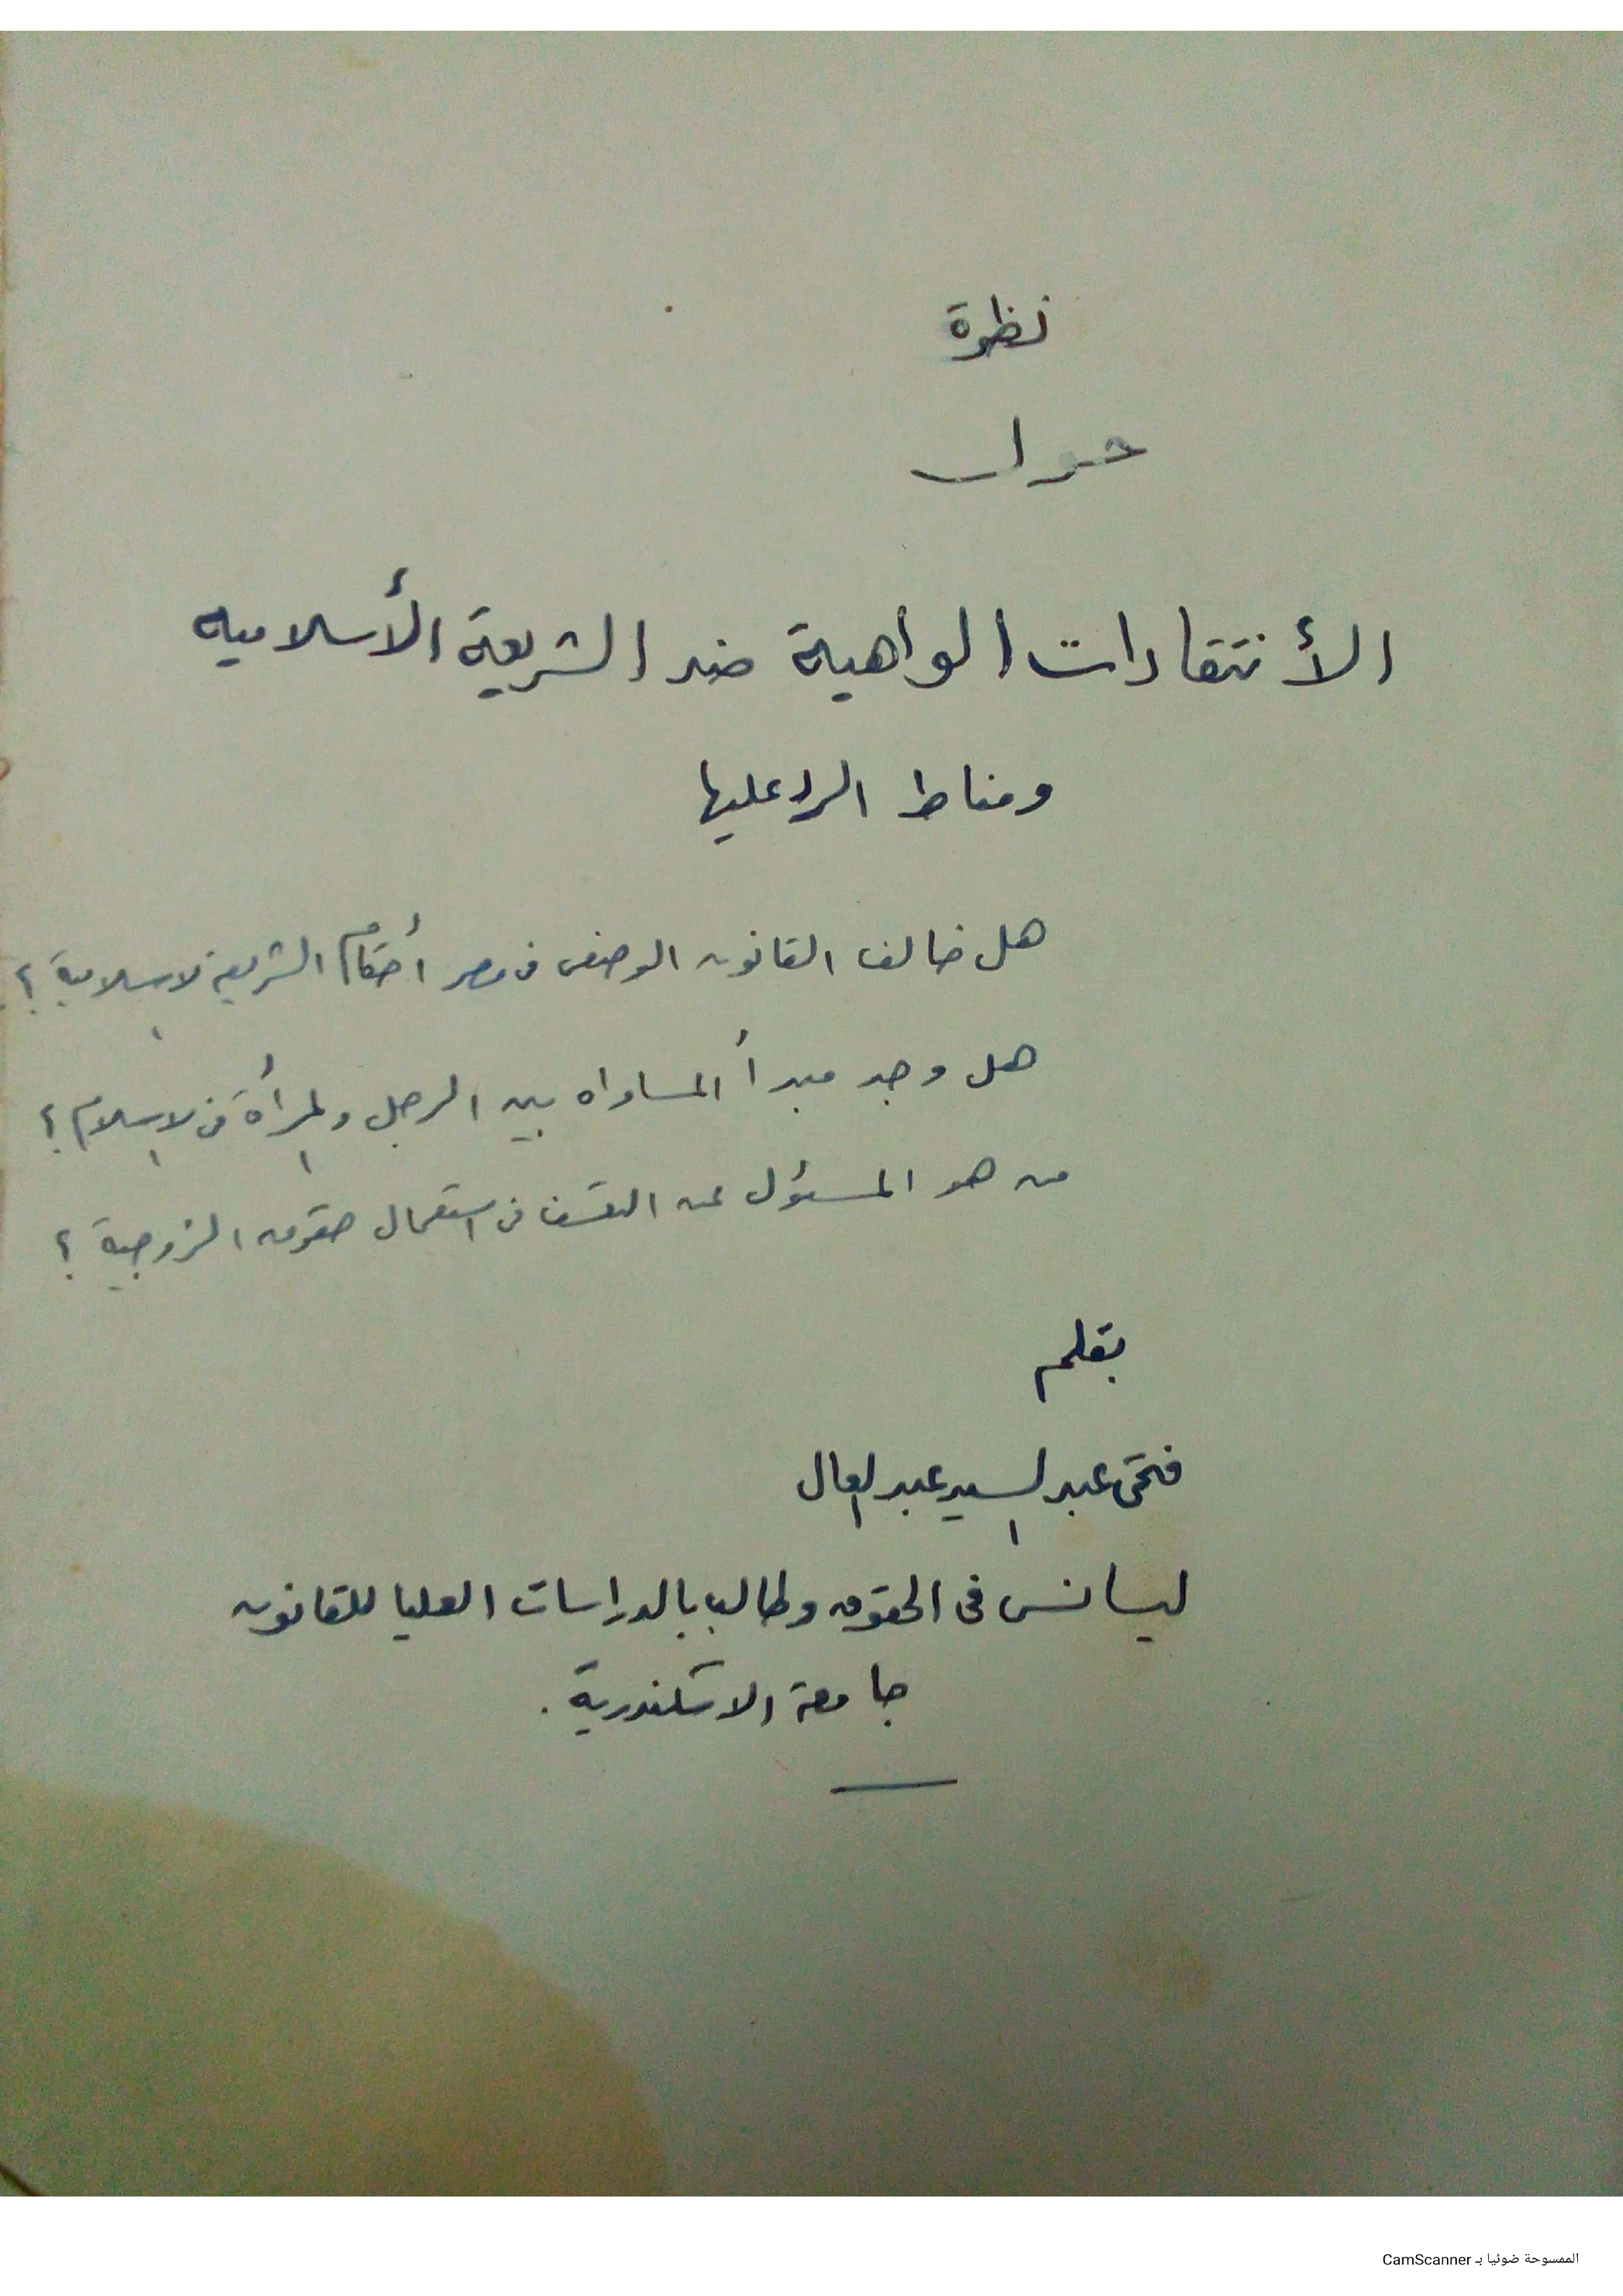 نظرة
حول
الأنتقادات الواهية ضد الشريعة الأسلاميه
ومناط الرد عليها
هل خالف القانون الوضعى فى مصر أحكام الشريعة الاسلامية ؟
هل وجد مبدأ المساواه بين الرجل والمرأة فى الاسلام ؟
من هو المسئول عن التعسف فى استعمال حقوق الزوجية ؟
بقلم
فتحى عبد السيد عبد العال
ليسانس فى الحقوق وطالب بالدراسات العليا للقانون
جامعة الاسكندرية .
الممسوحة ضوئيا بـ CamScanner